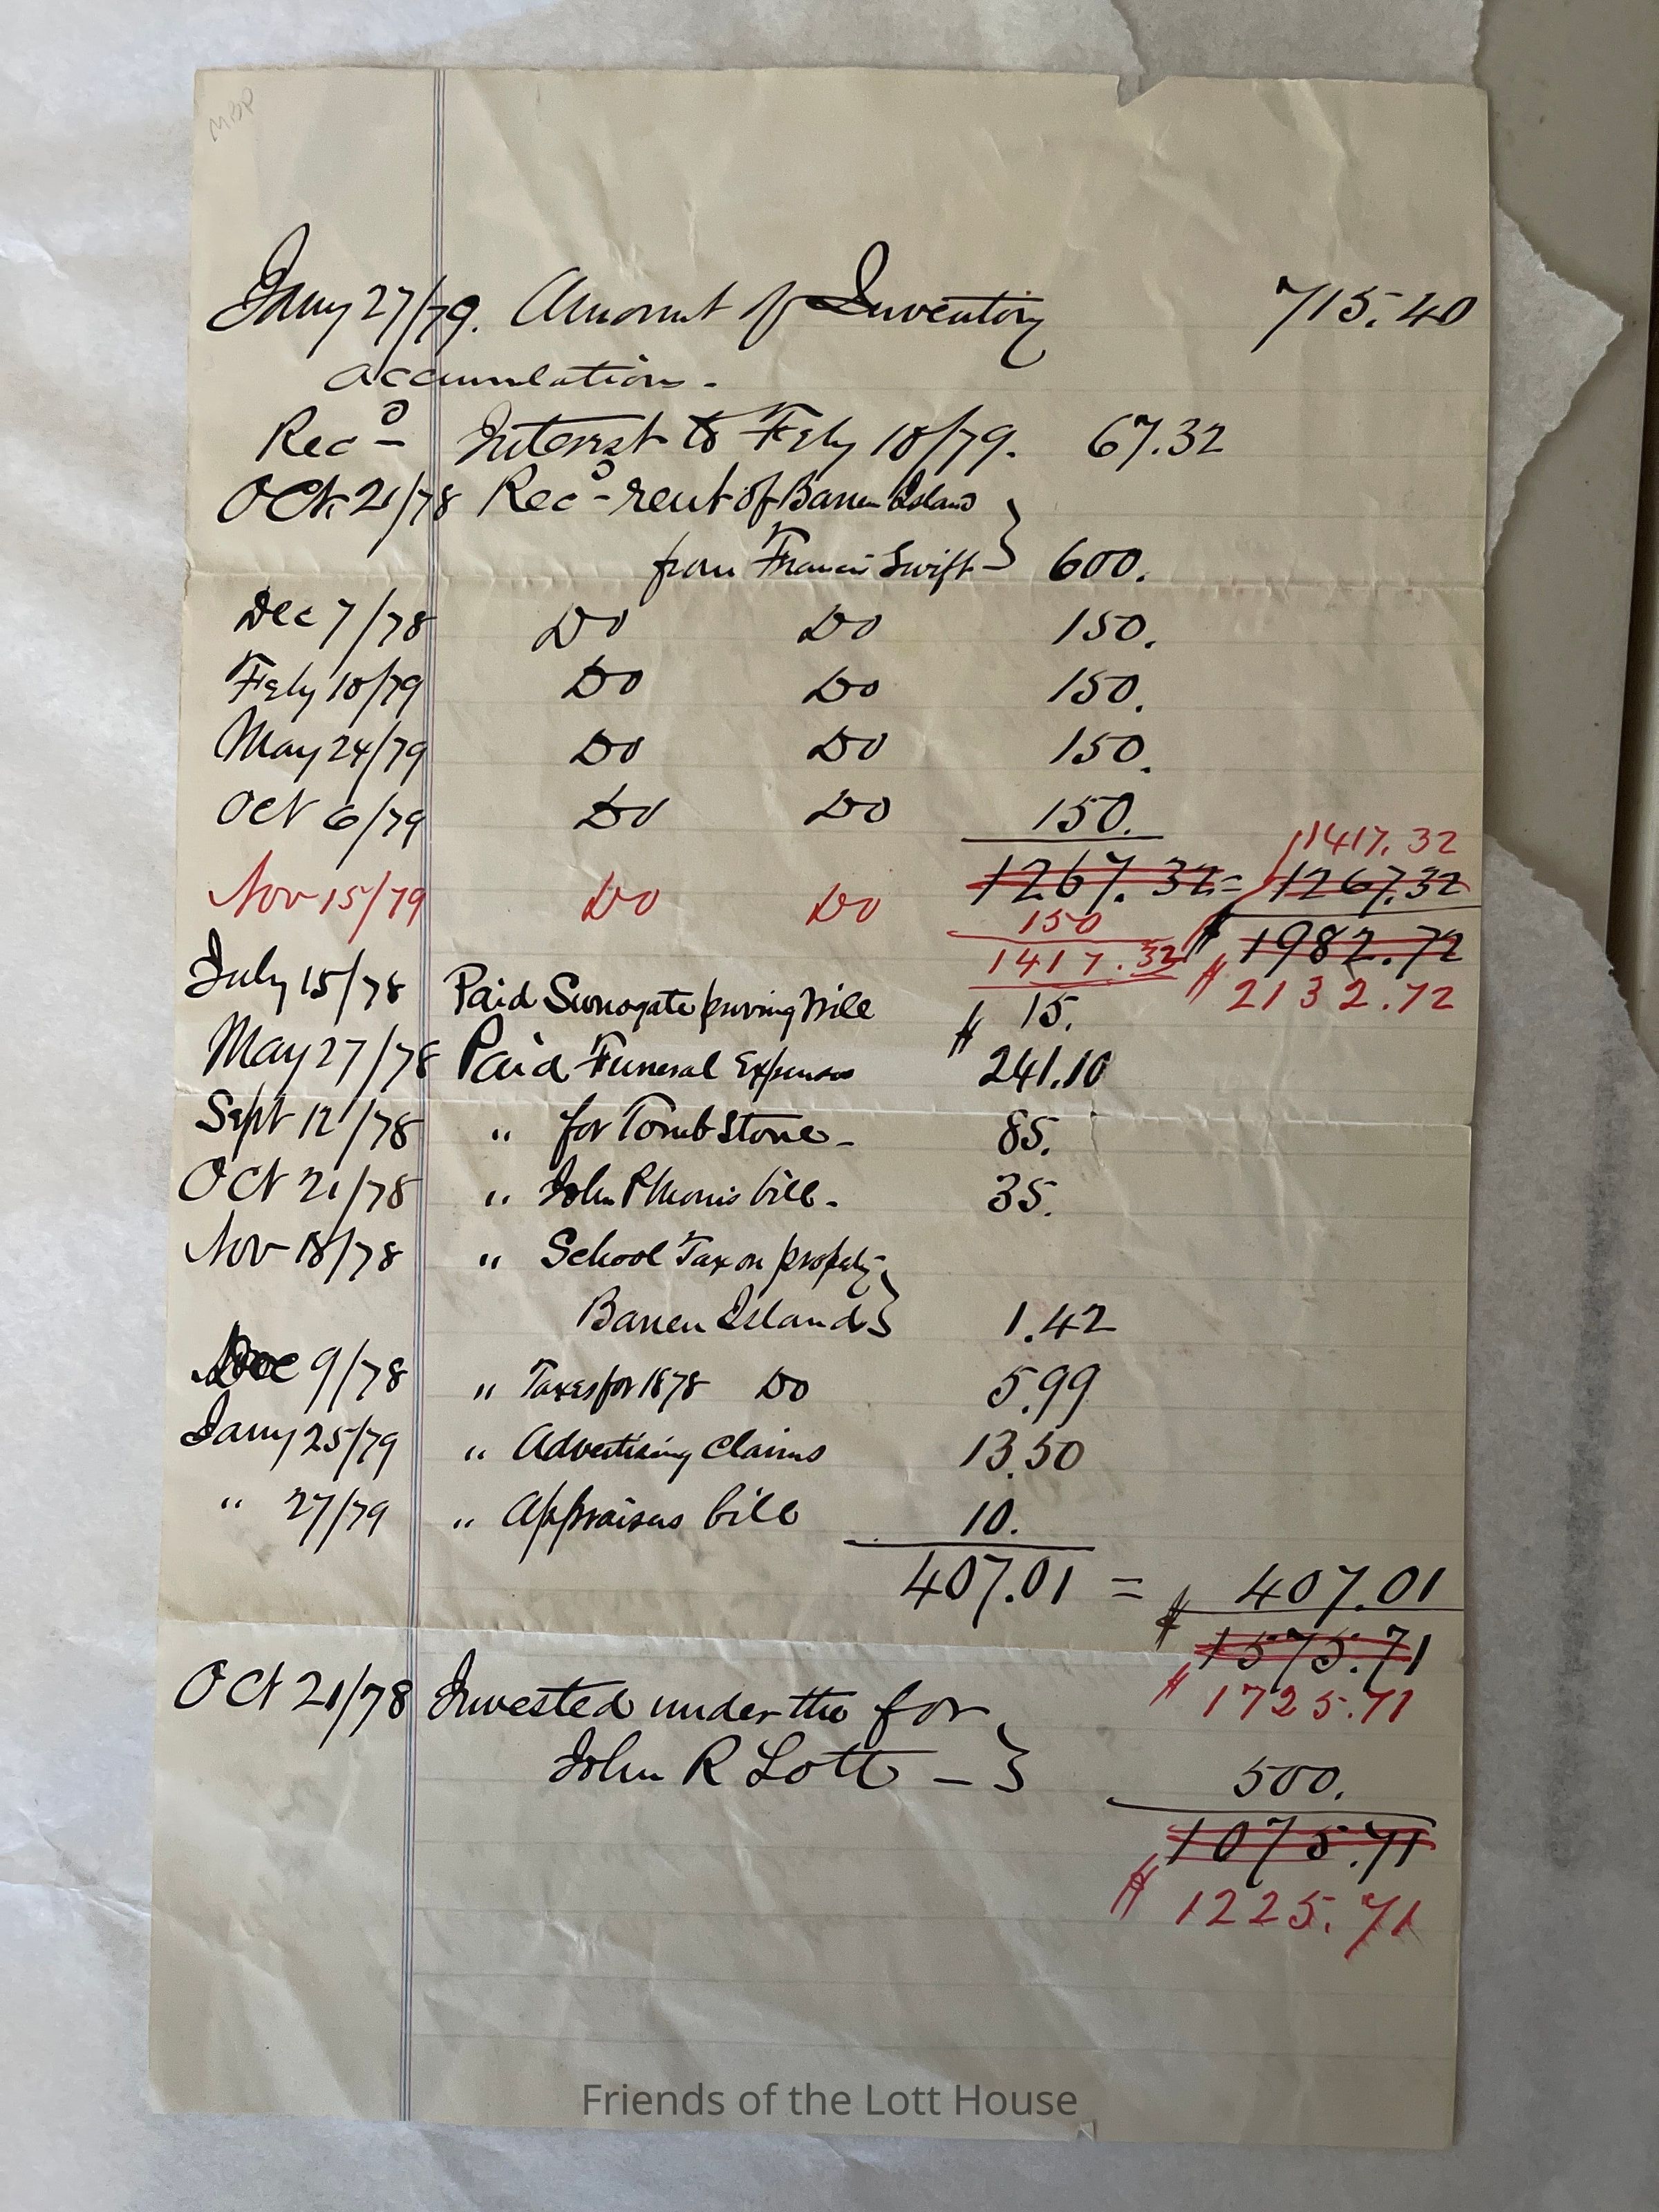 MBP
Jany 27/79. Amount of Inventory 715.40
accumulations.
Recd Interest to Feby 10/79. 67.32
Oct. 21/78 Recd rent of Barren Island
from Francis Swift } 600.
Dec 7/78 Do Do 150.
Feby 10/79 Do Do 150.
May 24/79 Do Do 150.
Oct 6/79 Do Do 150.
1417.32
1267.32 = 1267.32
Nov 15/79 Do Do 150
$ 1982.72
1417.32 $ 2132.72
July 15/78 Paid Surrogate proving Will $ 15.
May 27/78 Paid Funeral Expenses 241.10
Sept 12/78 " for Tomb Stone - 85.
Oct 21/78 " John P Morris bill - 35.
Nov 18/78 " School Tax on property
Barren Island } 1.42
Dec 9/78 " Taxes for 1878 Do 5.99
Jany 25/79 " Advertising Claims 13.50
" 27/79 " Appraisers bill 10.
407.01 = 407.01
$ 1575.71
$ 1725.71
Oct 21/78 Invested under the for
John R Lott - } 500.
1075.71
$ 1225.71
Friends of the Lott House